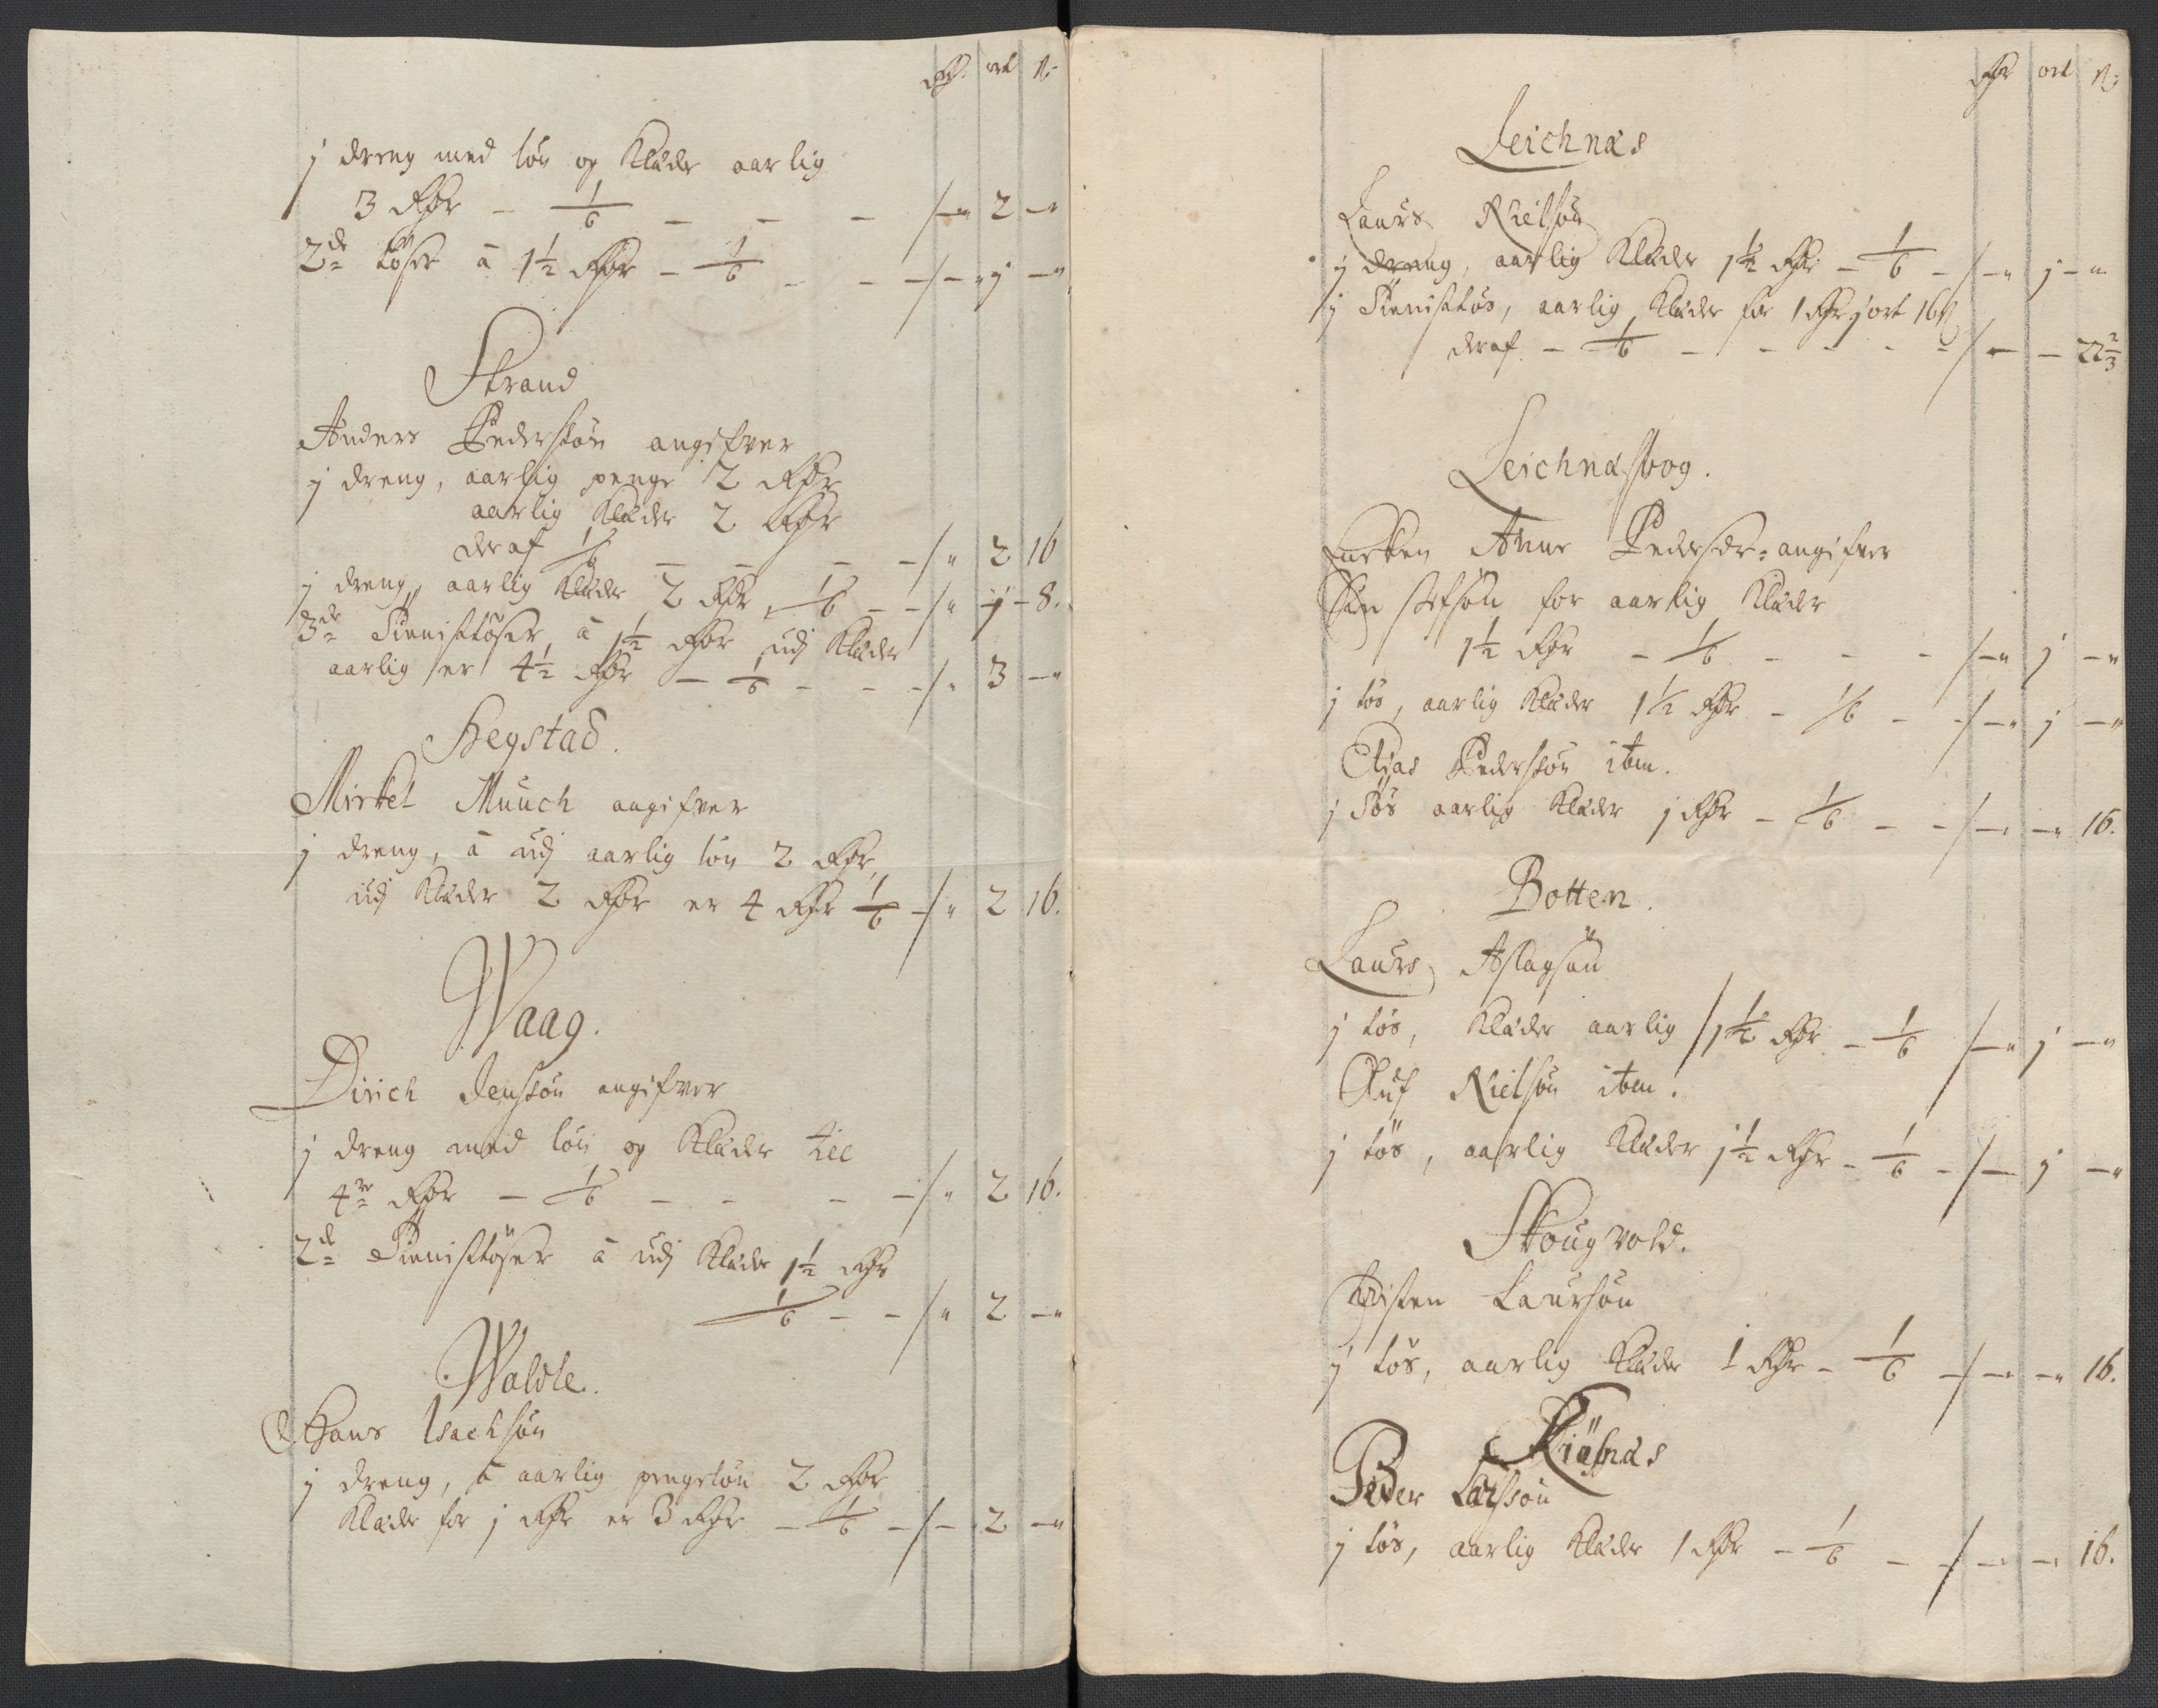 Rdr. ort ß
j dreng med løn og Klæder aarlig
3 Rdr - 1/6 - - - - " 2 - "
2de tøser â 1½ Rdr - 1/6 - - - " j - "
Strand
Anders Pedersøn angifver
j dreng, aarlig penge 2 Rdr
aarlig Klæder 2 Rdr
deraf 1/6 - - - - " 2 16
j dreng, aarlig Klæder 2 Rdr 1/6 - - " j - 8.
3de Tieniste tøser, â 1½ Rdr udj Klæder
aarlig er 4½ Rdr - 1/6 - - - " 3 - "
Hegstad.
Mickel Muuch angifver
j dreng, â udj aarlig løn 2 Rdr,
udj Klæder 2 Rdr er 4 Rdr 1/6 - " 2 16.
Waag.
Dirich Jensøn angifver
j dreng med løn og Klæder till
4re Rdr - 1/6 - - - - " 2 16.
2de Tienistetøser â udj Klæder 1½ Rdr
1/6 - - " 2 - "
Waldle.
Hans Isachsøn
j dreng, â aarlig pengeløn 2 Rdr
Klæder for j Rdr er 3 Rdr - 1/6 - - 2 - "
Rdr ort ß
Leichnæs
Laurs Nielsøn
j dreng, aarlig Klæder 1½ Rdr - 1/6 - - " j - "
j Tienistetøs, aarlig Klæder for 1 Rdr j ort 16 ß
deraf - 1/6 - - - - - - - 22⅔
Leichnæskog.
Encken Anne Pedersdr: angifver
Sin stefsøn for aarlig Klæder
1½ Rdr - 1/6 - - - - " j - "
j tøs, aarlig Klæder 1½ Rdr - 1/6 - - - " j - "
Elias Pedersøn item.
j Tøs aarlig Klæder j Rdr - 1/6 - - - - " 16.
Botten.
Laurs Aslagsøn
j tøs, Klæder aarlig 1½ Rdr - 1/6 - " j - "
Oluf Nielsøn item.
j tøs, aarlig Klæder j½ Rdr - 1/6 - - j - "
Skougvold.
Christen Laursøn
j tøs, aarlig Klæder 1 Rdr - 1/6 - - - " 16.
Kiøsnæs
Peder Larsson
j tøs, aarlig Klæder 1 Rdr - 1/6 - - - - 16.